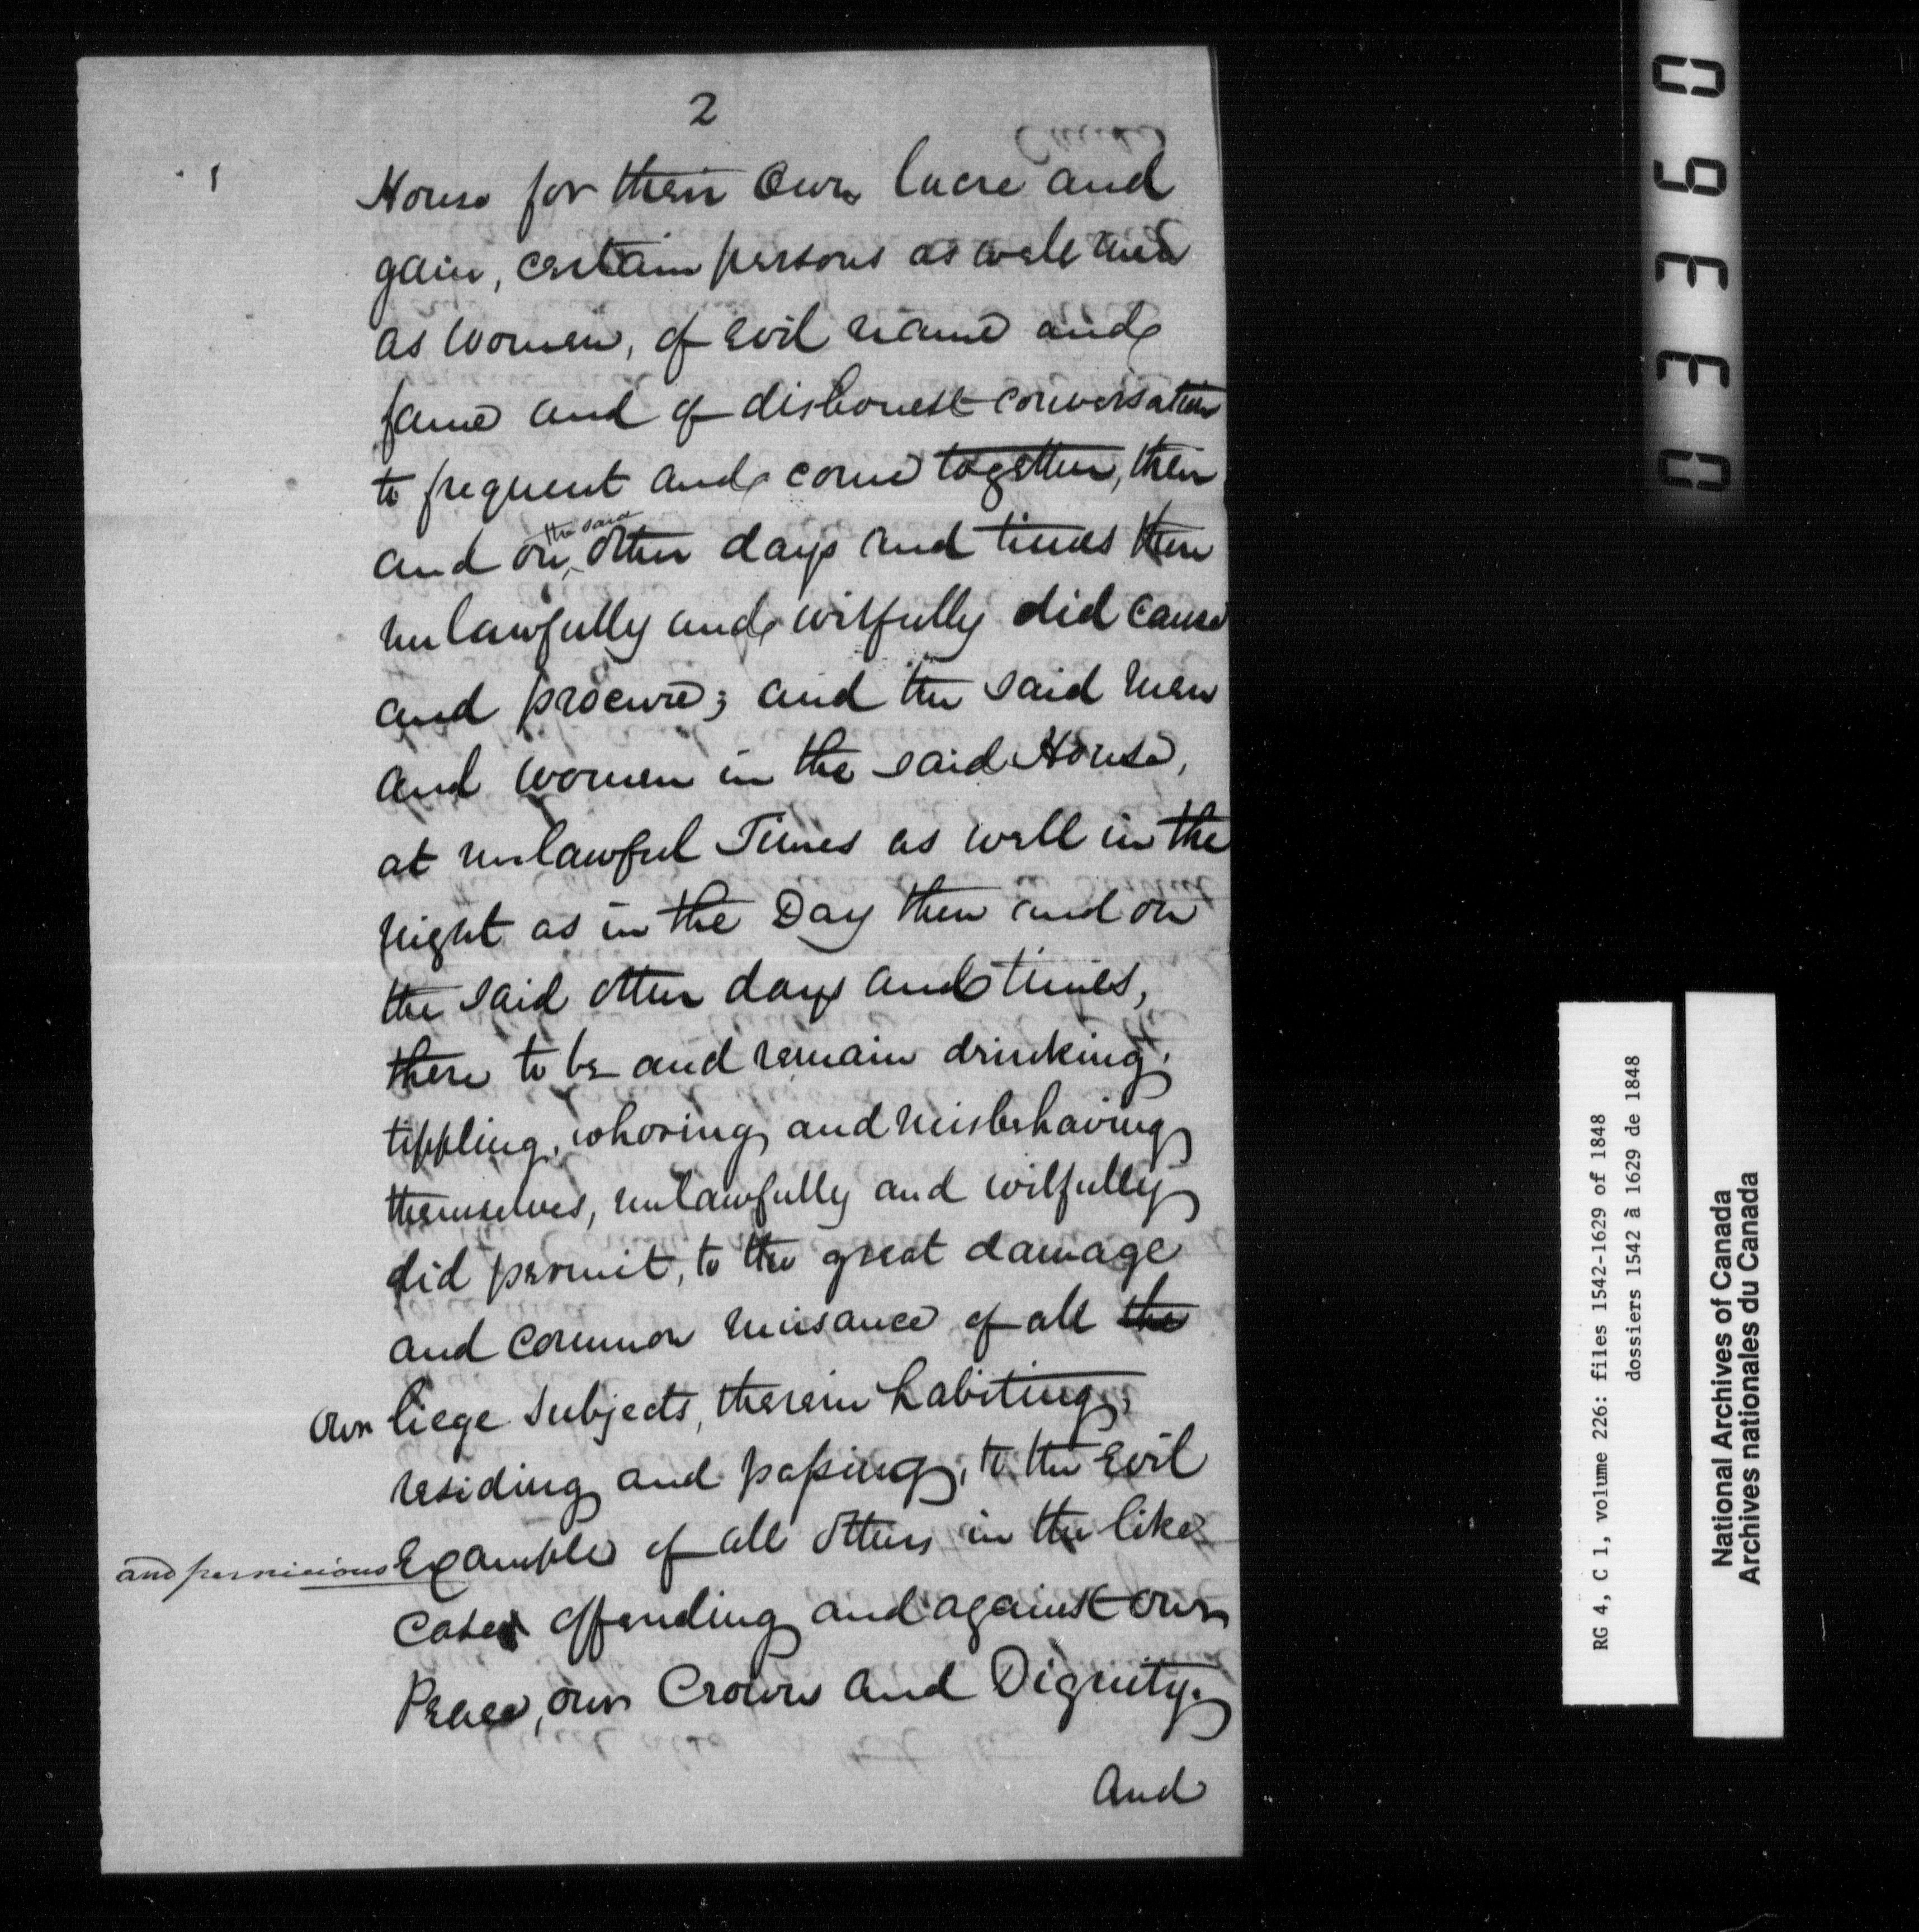 2
House for their own lucre and
gain, certain persons as well men
as women, of evil name and
fame and of dishonest conversation
to frequent and come together, then
the said
and on other days and times there
unlawfully and wilfully did cause
and procure; and the said men
and women in the said House,
at unlawful Times as well in the
night as in the Day then and on
the said other days and times,
there to be and remain drinking,
tippling, whoring and misbehaving
themselves, unlawfully and wilfully
did permit, to the great damage
and common nuisance of all the
our liege Subjects, therein habiting,
residing and passing, to the Evil
and pernicious Example of all others in the like
case offending and against our
Peace, our Crown and Dignity.
And
03360
RG 4, C 1, volume 226: files 1542-1629 of 1848
dossiers 1542 à 1629 de 1848
National Archives of Canada
Archives nationales du Canada